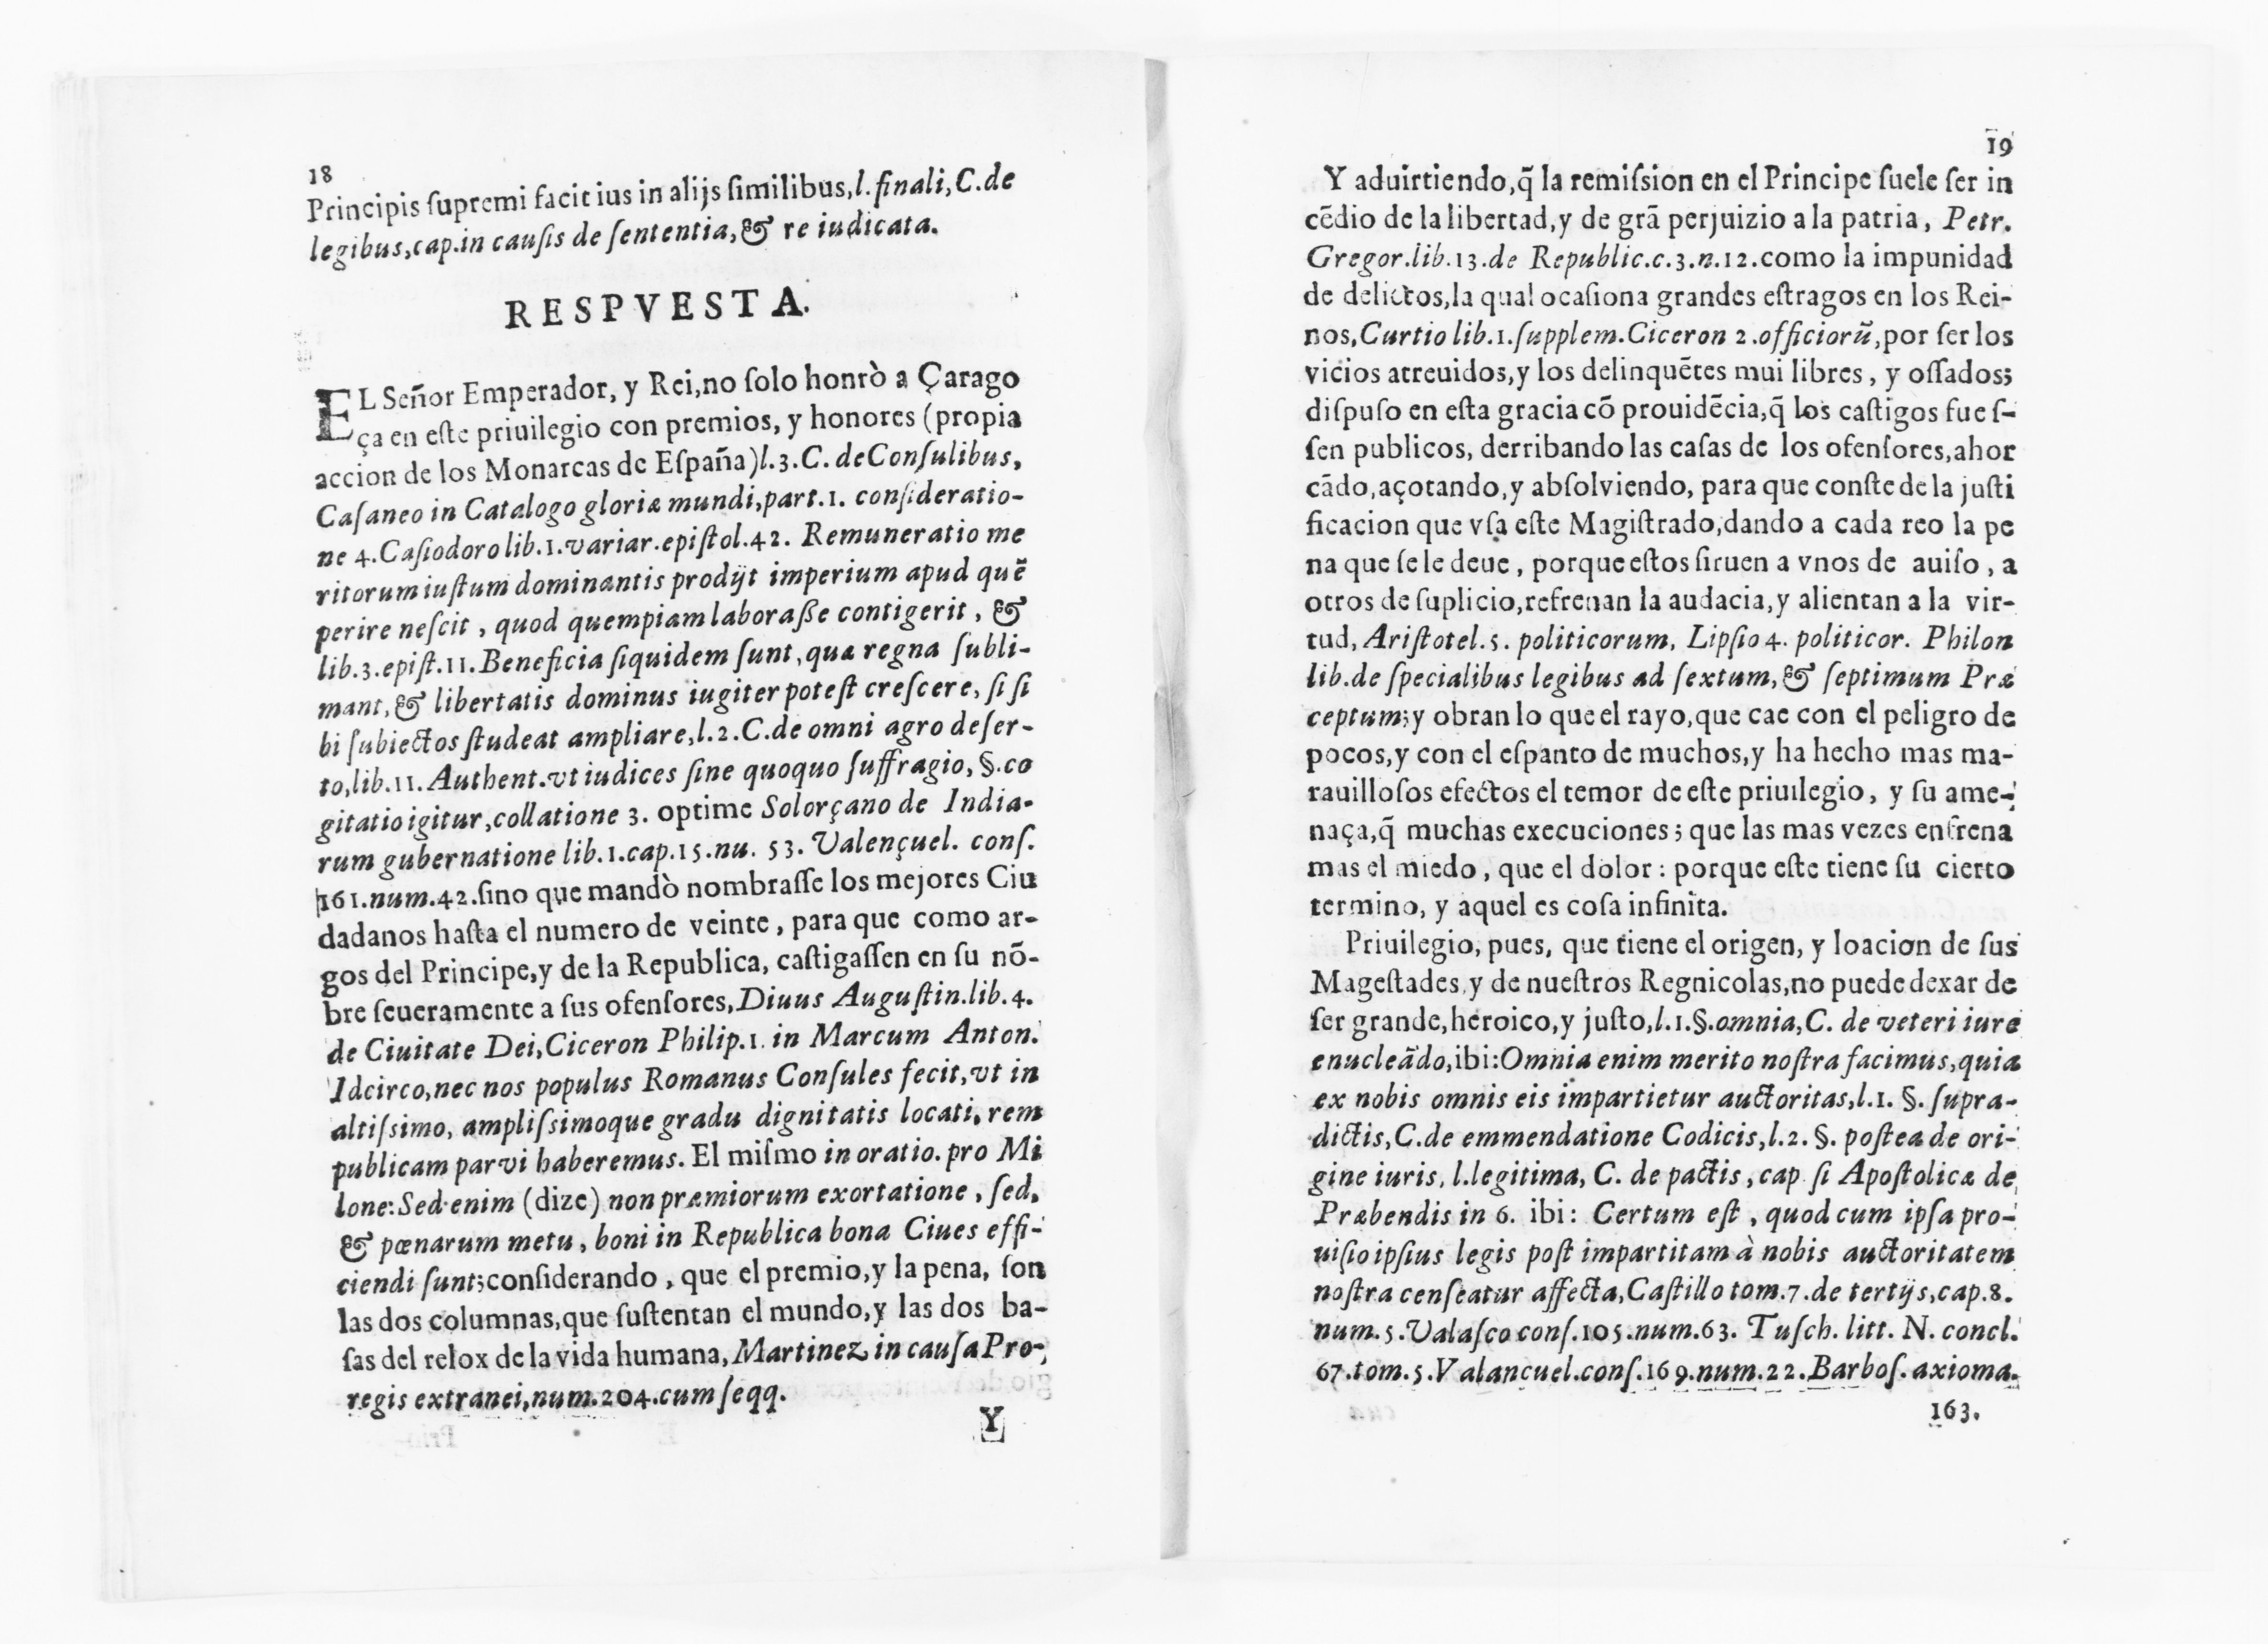 18
Principis ſupremi facit ius in alijs ſimilibus, l. finali, C. de
legibus, cap. in cauſis de ſententia, & re iudicata.
RESPVESTA.
EL Señor Emperador, y Rei, no ſolo honrò a Çarago
ça en eſte priuilegio con premios, y honores (propia
accion de los Monarcas de Eſpaña) l. 3. C. de Conſulibus,
Caſaneo in Catalogo gloriæ mundi, part. 1. conſideratio-
ne 4. Caſiodoro lib. 1. variar. epiſtol. 42. Remuneratio me
ritorum iuſtum dominantis prodijt imperium apud quẽ
perire neſcit, quod quempiam laboraſſe contigerit, &
lib. 3. epiſt. 11. Beneficia ſiquidem ſunt, quæ regna ſubli-
mant, & libertatis dominus iugiter poteſt creſcere, ſi ſi
bi ſubiectos ſtudeat ampliare, l. 2. C. de omni agro deſer-
to, lib. 11. Authent. vt iudices ſine quoquo ſuffragio, §. co
gitatio igitur, collatione 3. optime Solorçano de India-
rum gubernatione lib. 1. cap. 15. nu. 53. Valençuel. conſ.
161. num. 42. ſino que mandò nombraſſe los mejores Ciu
dadanos haſta el numero de veinte, para que como ar-
gos del Principe, y de la Republica, caſtigaſſen en ſu nõ-
bre ſeueramente a ſus ofenſores, Diuus Auguſtin. lib. 4.
de Ciuitate Dei, Ciceron Philip. 1. in Marcum Anton.
Idcirco, nec nos populus Romanus Conſules fecit, vt in
altiſsimo, ampliſsimoque gradu dignitatis locati, rem
publicam parvi haberemus. El miſmo in oratio. pro Mi
lone: Sed enim (dize) non præmiorum exortatione, ſed,
& pœnarum metu, boni in Republica bona Ciues effi-
ciendi ſunt; conſiderando, que el premio, y la pena, ſon
las dos columnas, que ſuſtentan el mundo, y las dos ba-
ſas del relox de la vida humana, Martinez in cauſa Pro-
regis extranei, num. 204. cum ſeqq.
Y
19
Y aduirtiendo, q̃ la remiſsion en el Principe ſuele ſer in
cẽdio de la libertad, y de grã perjuizio a la patria, Petr.
Gregor. lib. 13. de Republic. c. 3. n. 12. como la impunidad
de delictos, la qual ocaſiona grandes eſtragos en los Rei-
nos, Curtio lib. 1. ſupplem. Ciceron 2. officiorũ, por ſer los
vicios atreuidos, y los delinquẽtes mui libres, y oſſados;
diſpuſo en eſta gracia cõ prouidẽcia, q̃ los caſtigos fueſ-
ſen publicos, derribando las caſas de los ofenſores, ahor
cãdo, açotando, y abſolviendo, para que conſte de la juſti
ficacion que vſa eſte Magiſtrado, dando a cada reo la pe
na que ſe le deue, porque eſtos ſiruen a vnos de auiſo, a
otros de ſuplicio, refrenan la audacia, y alientan a la vir-
tud, Ariſtotel. 5. politicorum, Lipſio 4. politicor. Philon
lib. de ſpecialibus legibus ad ſextum, & ſeptimum Præ
ceptum; y obran lo que el rayo, que cae con el peligro de
pocos, y con el eſpanto de muchos, y ha hecho mas ma-
rauilloſos efectos el temor de eſte priuilegio, y ſu ame-
naça, q̃ muchas execuciones; que las mas vezes enfrena
mas el miedo, que el dolor: porque eſte tiene ſu cierto
termino, y aquel es coſa infinita.
Priuilegio, pues, que tiene el origen, y loacion de ſus
Mageſtades, y de nueſtros Regnicolas, no puede dexar de
ſer grande, heroico, y juſto, l. 1. §. omnia, C. de veteri iure
enucleãdo, ibi: Omnia enim merito noſtra facimus, quia
ex nobis omnis eis impartietur auctoritas, l. 1. §. ſupra-
dictis, C. de emmendatione Codicis, l. 2. §. poſtea de ori-
gine iuris, l. legitima, C. de pactis, cap. ſi Apoſtolicæ de
Præbendis in 6. ibi: Certum eſt, quod cum ipſa pro-
uiſio ipſius legis poſt impartitam à nobis auctoritatem
noſtra cenſeatur affecta, Caſtillo tom. 7. de tertijs, cap. 8.
num. 5. Valaſco conſ. 105. num. 63. Tuſch. litt. N. concl.
67. tom. 5. Valançuel. conſ. 169. num. 22. Barboſ. axioma.
163.